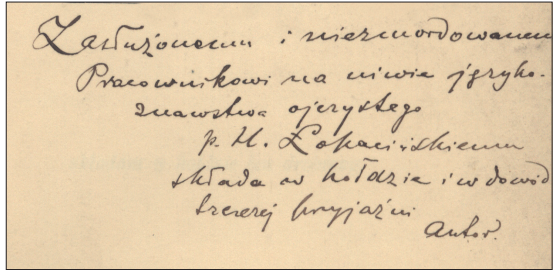 Zasłużonemu i niezmordowanemu
Pracownikowi na niwie języko-
znawstwa ojczystego
p. H. Łopacińskiemu
składa w hołdzie i w dowód
szczerej przyjaźni
Autor.